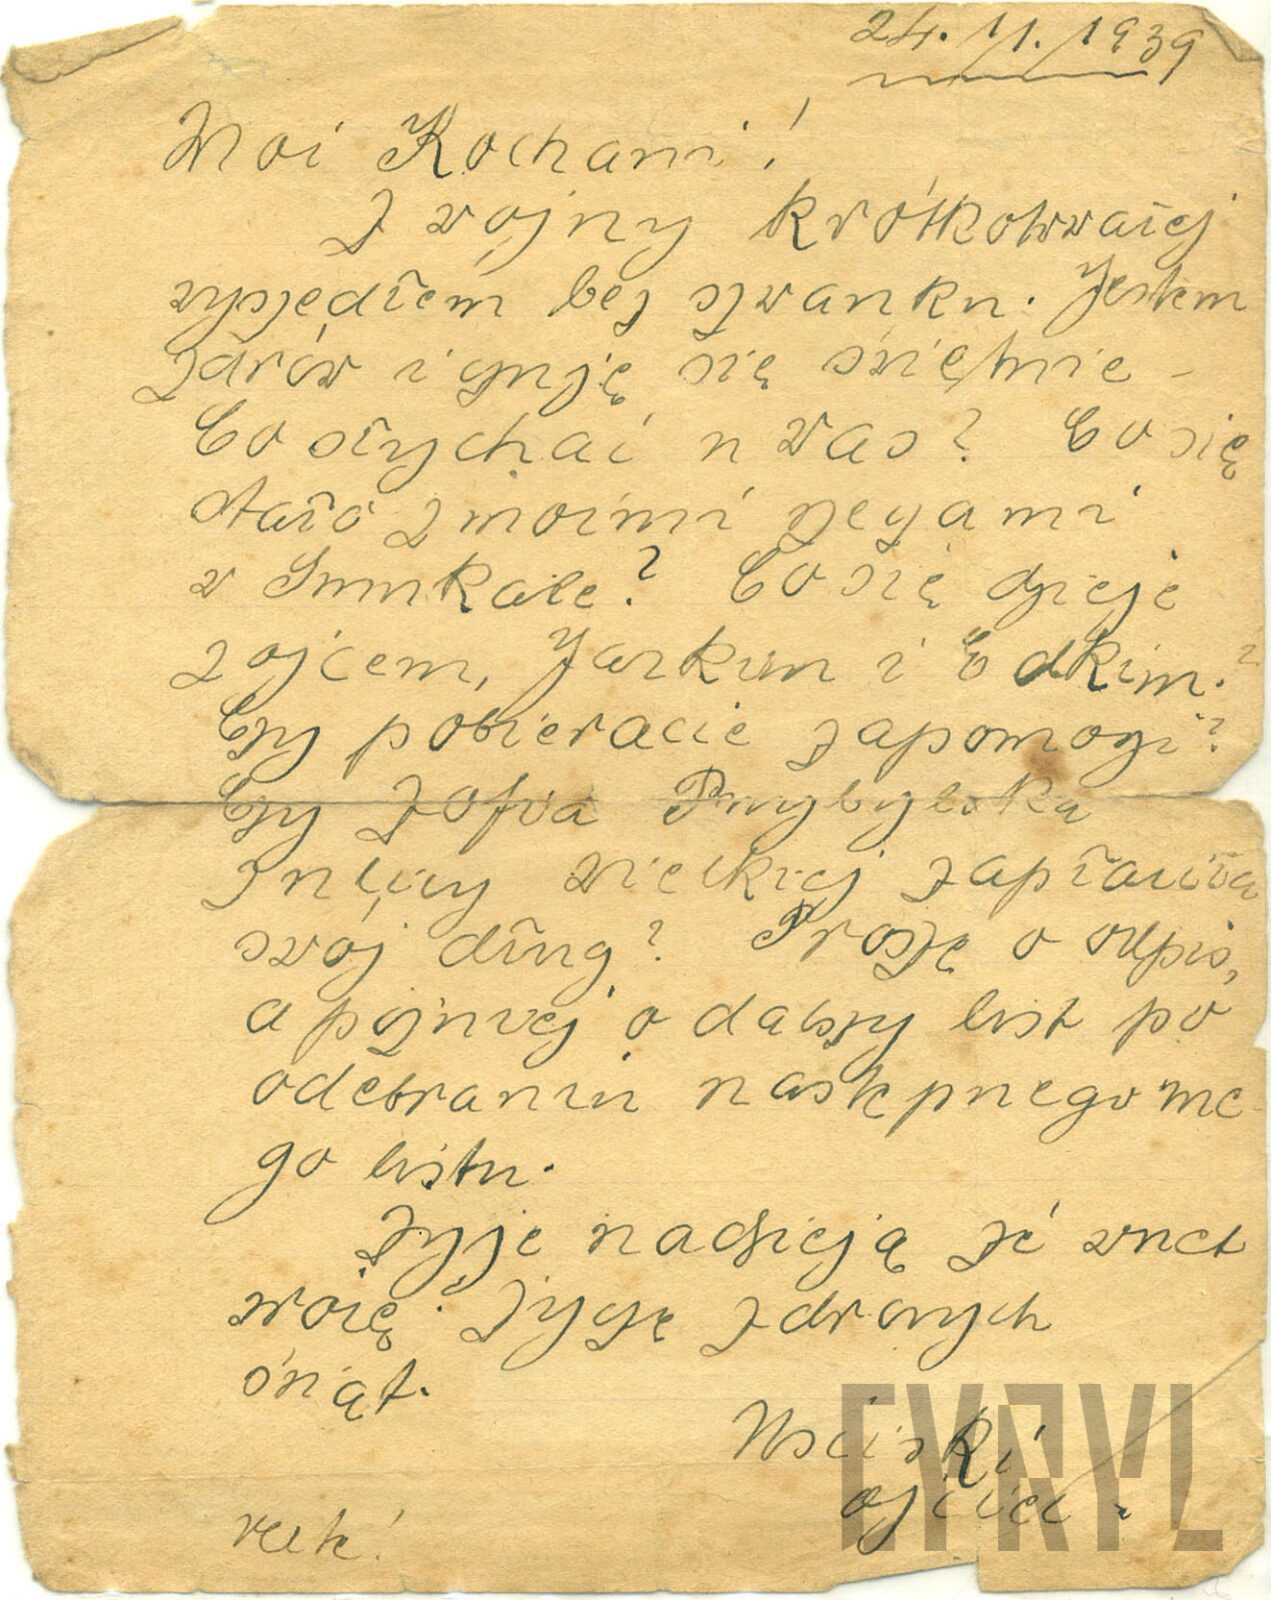 24. 11. 1939
Moi Kochani!
Z wojny krótkotrwałej
wyszedłem bez szwanku. Jestem
zdrów i czuję się świetnie -
Co słychać u was? Co się
stało z moimi rzeczami
w Suwkale? Co się dzieje
z ojcem, Jurkiem i Edkiem?
Czy pobieracie zapomogi?
Czy Zofia Przybylska
z ulicy wielkiej zapłaciła
swój dług? Proszę o odpis,
a później o dalszy list po
odebraniu następnego me-
go listu.
Żyję nadzieją że wnet
wrócę. Życzę zdrowych
świąt.
Uściski
ojciec -
verte!
CYRYL